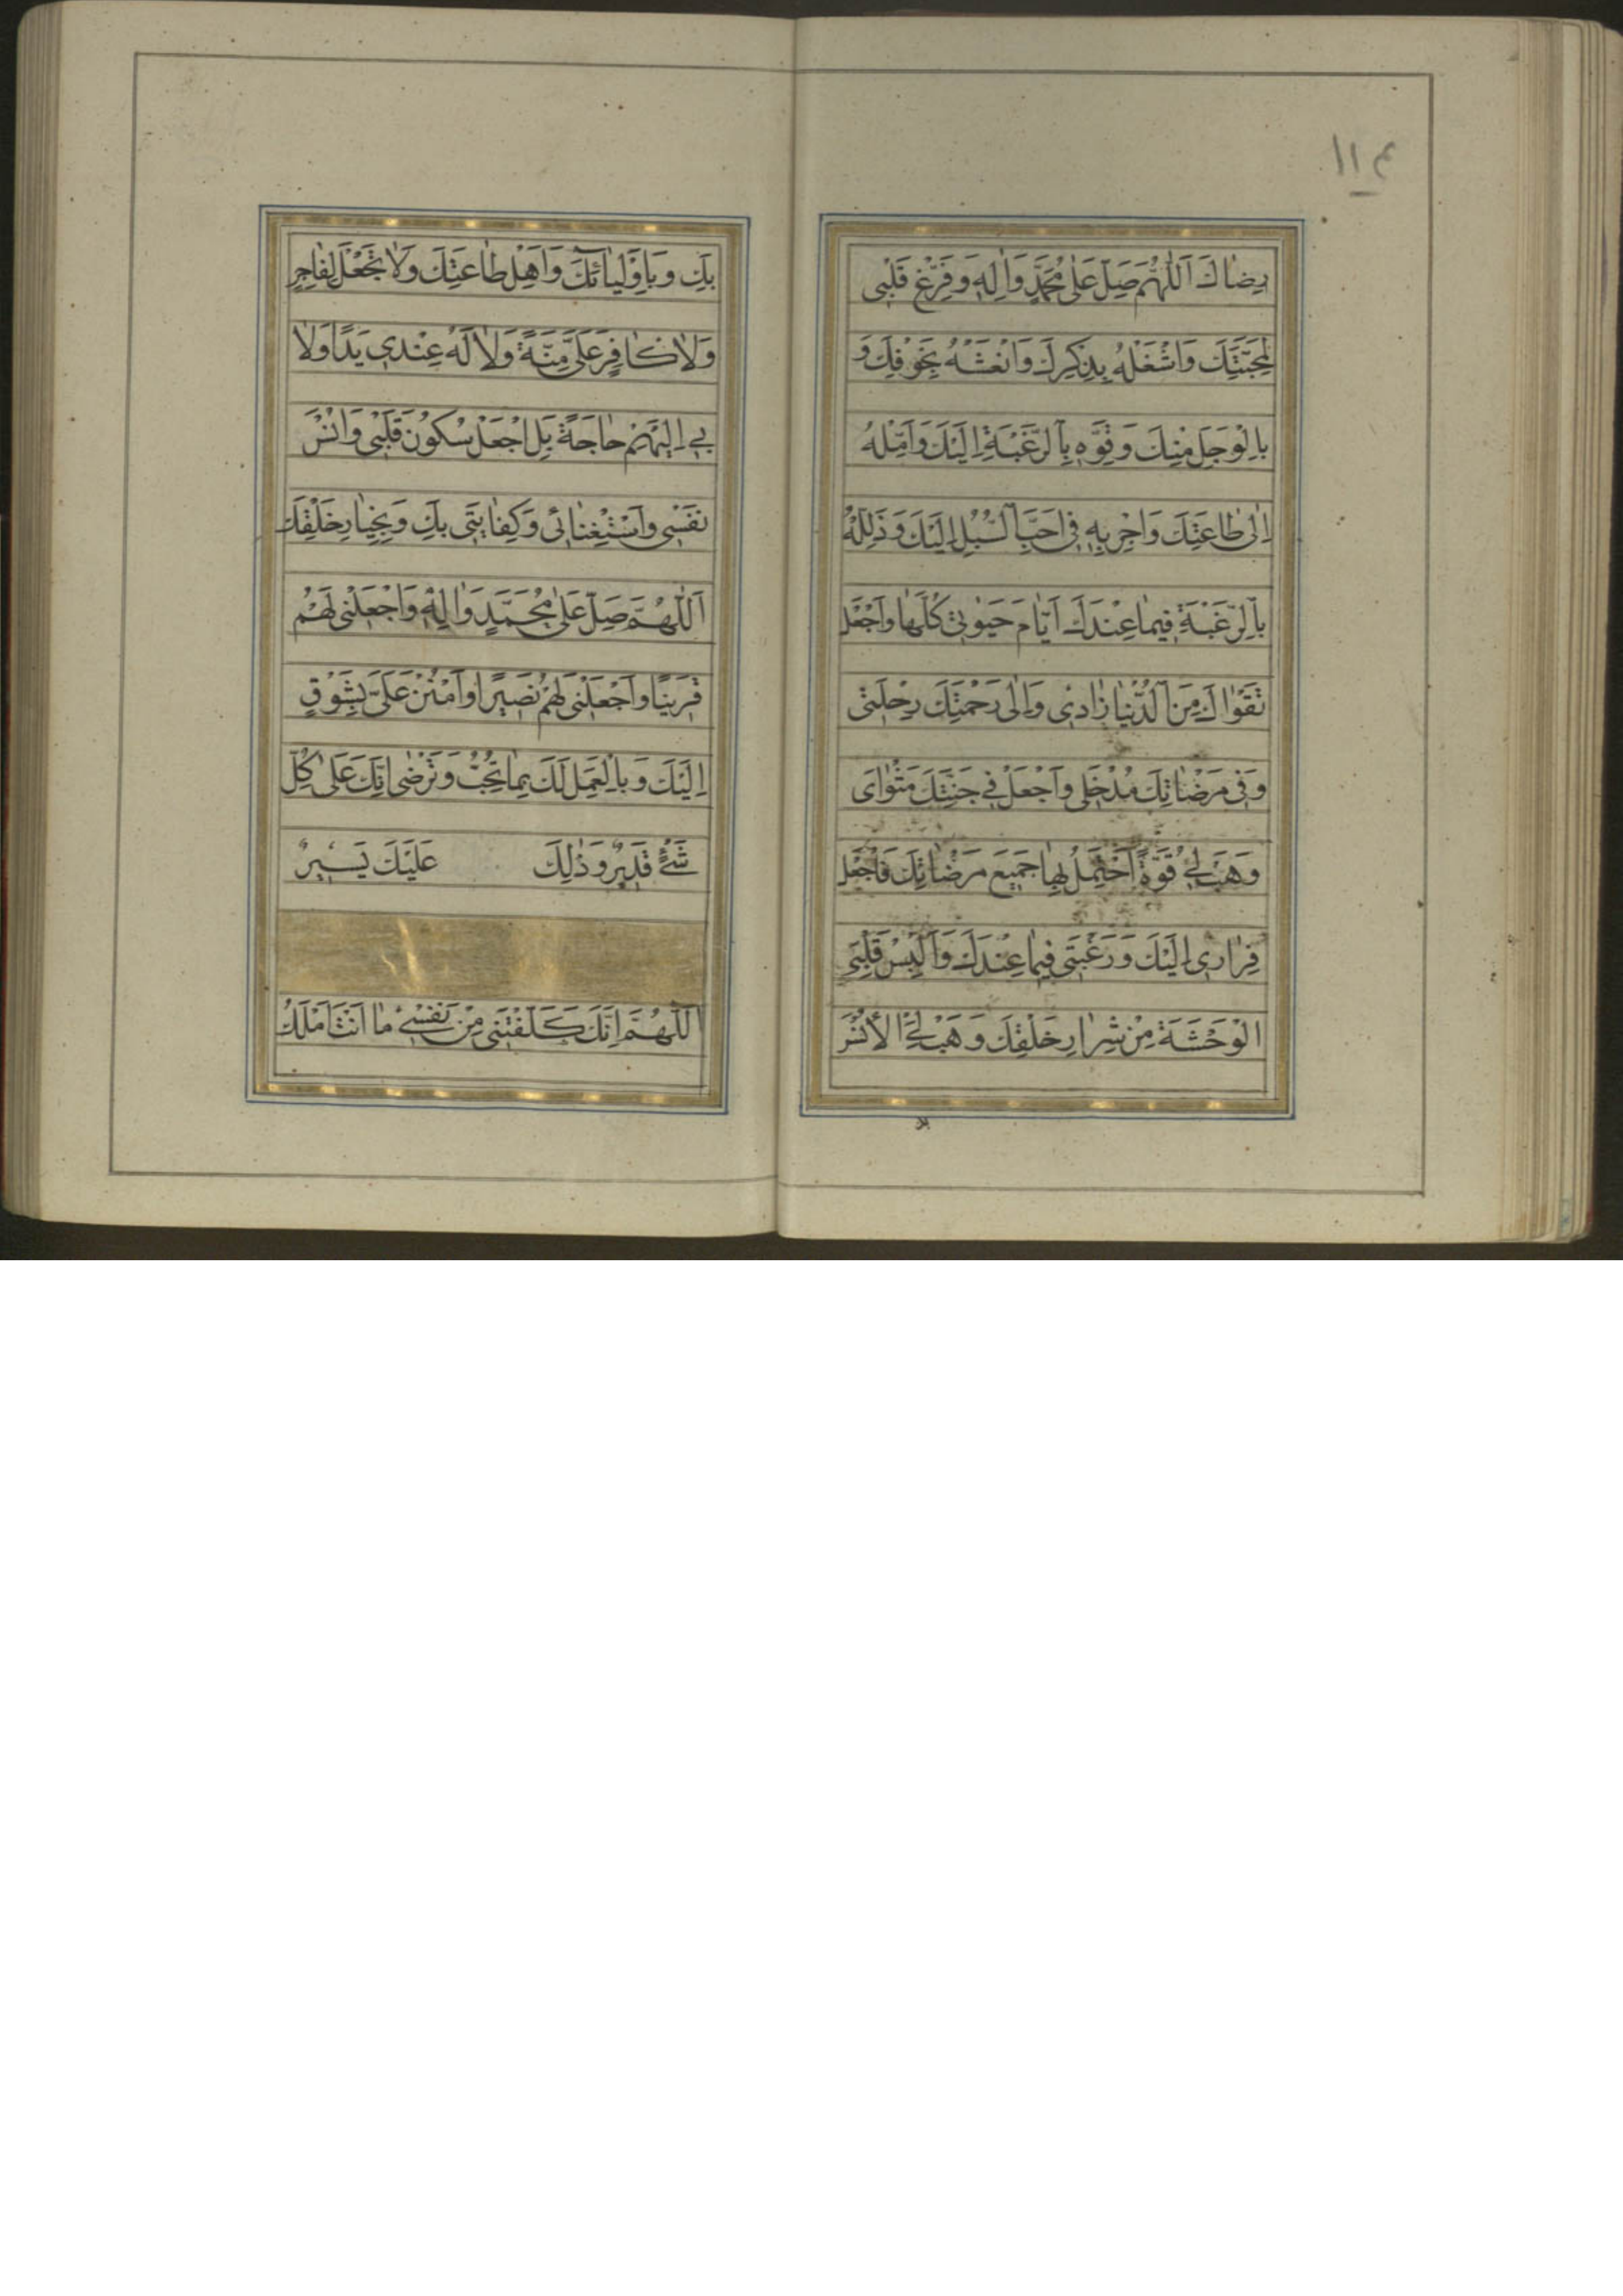 ١١٤
رِضٰاكَ اَللّٰهُمَّ صَلِّ عَلٰى مُحَمَّدٍ وَاٰلِهِ وَفَرِّغْ قَلْبى
لِمَحَبَّتِكَ وَاشْغَلْهُ بِذِكْرِكَ وَانْعَشْهُ بِخَوْفِكَ وَ
بِالْوَجَلِ مِنْكَ وَقَوِّهِ بِالرَّغْبَةِ اِلَيْكَ وَاَمِلْهُ
اِلٰى طٰاعَتِكَ وَاَجْرِ بِهِ فى اَحَبِّ السُّبُلِ اِلَيْكَ وَذَلِّلْهُ
بِالرَّغْبَةِ فيمٰا عِنْدَكَ اَيّٰامَ حَيٰوتى كُلَّهٰا وَاجْعَلْ
تَقْوٰاكَ مِنَ الدُّنْيٰا زٰادى وَاِلٰى رَحْمَتِكَ رِحْلَتى
وَفى مَرْضٰاتِكَ مُدْخَلى وَاجْعَلْ فى جَنَّتِكَ مَثْوٰاىَ
وَهَبْ لى قُوَّةً اَحْتَمِلُ بِهٰا جَميعَ مَرْضٰاتِكَ فَاجْعَلْ
فِرٰارى اِلَيْكَ وَرَغْبَتى فيمٰا عِنْدَكَ وَاَلْبِسْ قَلْبِىَ
الْوَحْشَةَ مِنْ شِرٰارِ خَلْقِكَ وَهَبْ لِىَ الْاُنْسَ
بِكَ وَبِاَوْلِيٰائِكَ وَاَهْلِ طٰاعَتِكَ وَلاٰ تَجْعَلْ لِفٰاجِرٍ
وَلاٰ كٰافِرٍ عَلَىَّ مِنَّةً وَلاٰ لَهُ عِنْدى يَدًا وَلاٰ
بى اِلَيْهِمْ حٰاجَةً بَلِ اجْعَلْ سُكُونَ قَلْبى وَاُنْسَ
نَفْسى وَاسْتِغْنٰائى وَكِفٰايَتى بِكَ وَبِخِيٰارِ خَلْقِكَ
اَللّٰهُمَّ صَلِّ عَلٰى مُحَمَّدٍ وَاٰلِهِ وَاجْعَلْنى لَهُمْ
قَرينًا وَاجْعَلْنى لَهُمْ نَصيرًا وَامْنُنْ عَلَىَّ بِشَوْقٍ
اِلَيْكَ وَبِالْعَمَلِ لَكَ بِمٰا تُحِبُّ وَتَرْضٰى اِنَّكَ عَلٰى كُلِّ
شَىْءٍ قَديرٌ وَذٰلِكَ عَلَيْكَ يَسيرٌ
اَللّٰهُمَّ اِنَّكَ كَلَّفْتَنى مِنْ نَفْسى مٰا اَنْتَ اَمْلَكُ